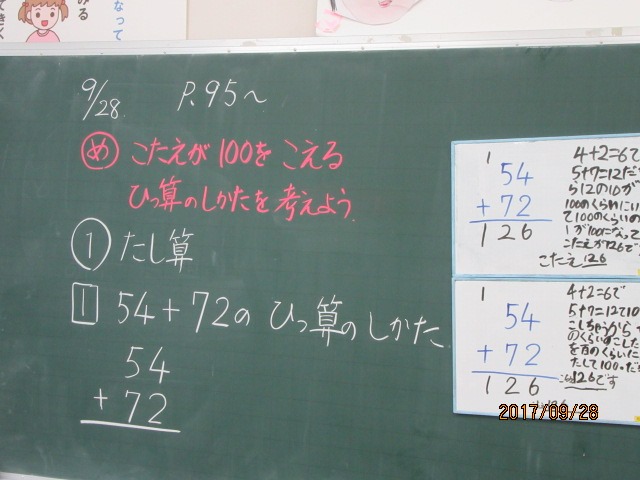 なって
みる
てきく
9/28 P.95～
め こたえが100を こえる
ひっ算のしかたを考えよう
① たし算
1 54+72の ひっ算のしかた
54
+72
1
54
+72
126
4+2=6で
5+7=12だか
ら12の10が
100のくらいにい
て100のくらいの
1が100になって
こたえが126です
こたえ126
1
54
+72
126
4+2=6で
5+7=12で10
こしちゃうから
のくらいのこした
を百のくらいに
たして100.だか
126です
2017/09/28